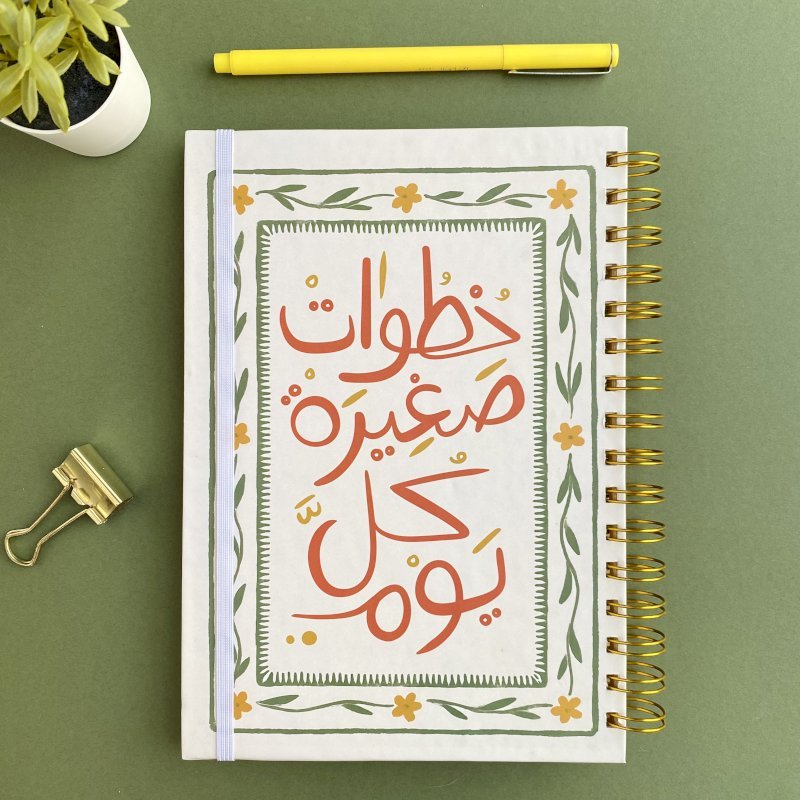 خُطُوَاتْ
صَغِيرَةْ
كُلَّ
يَوْم